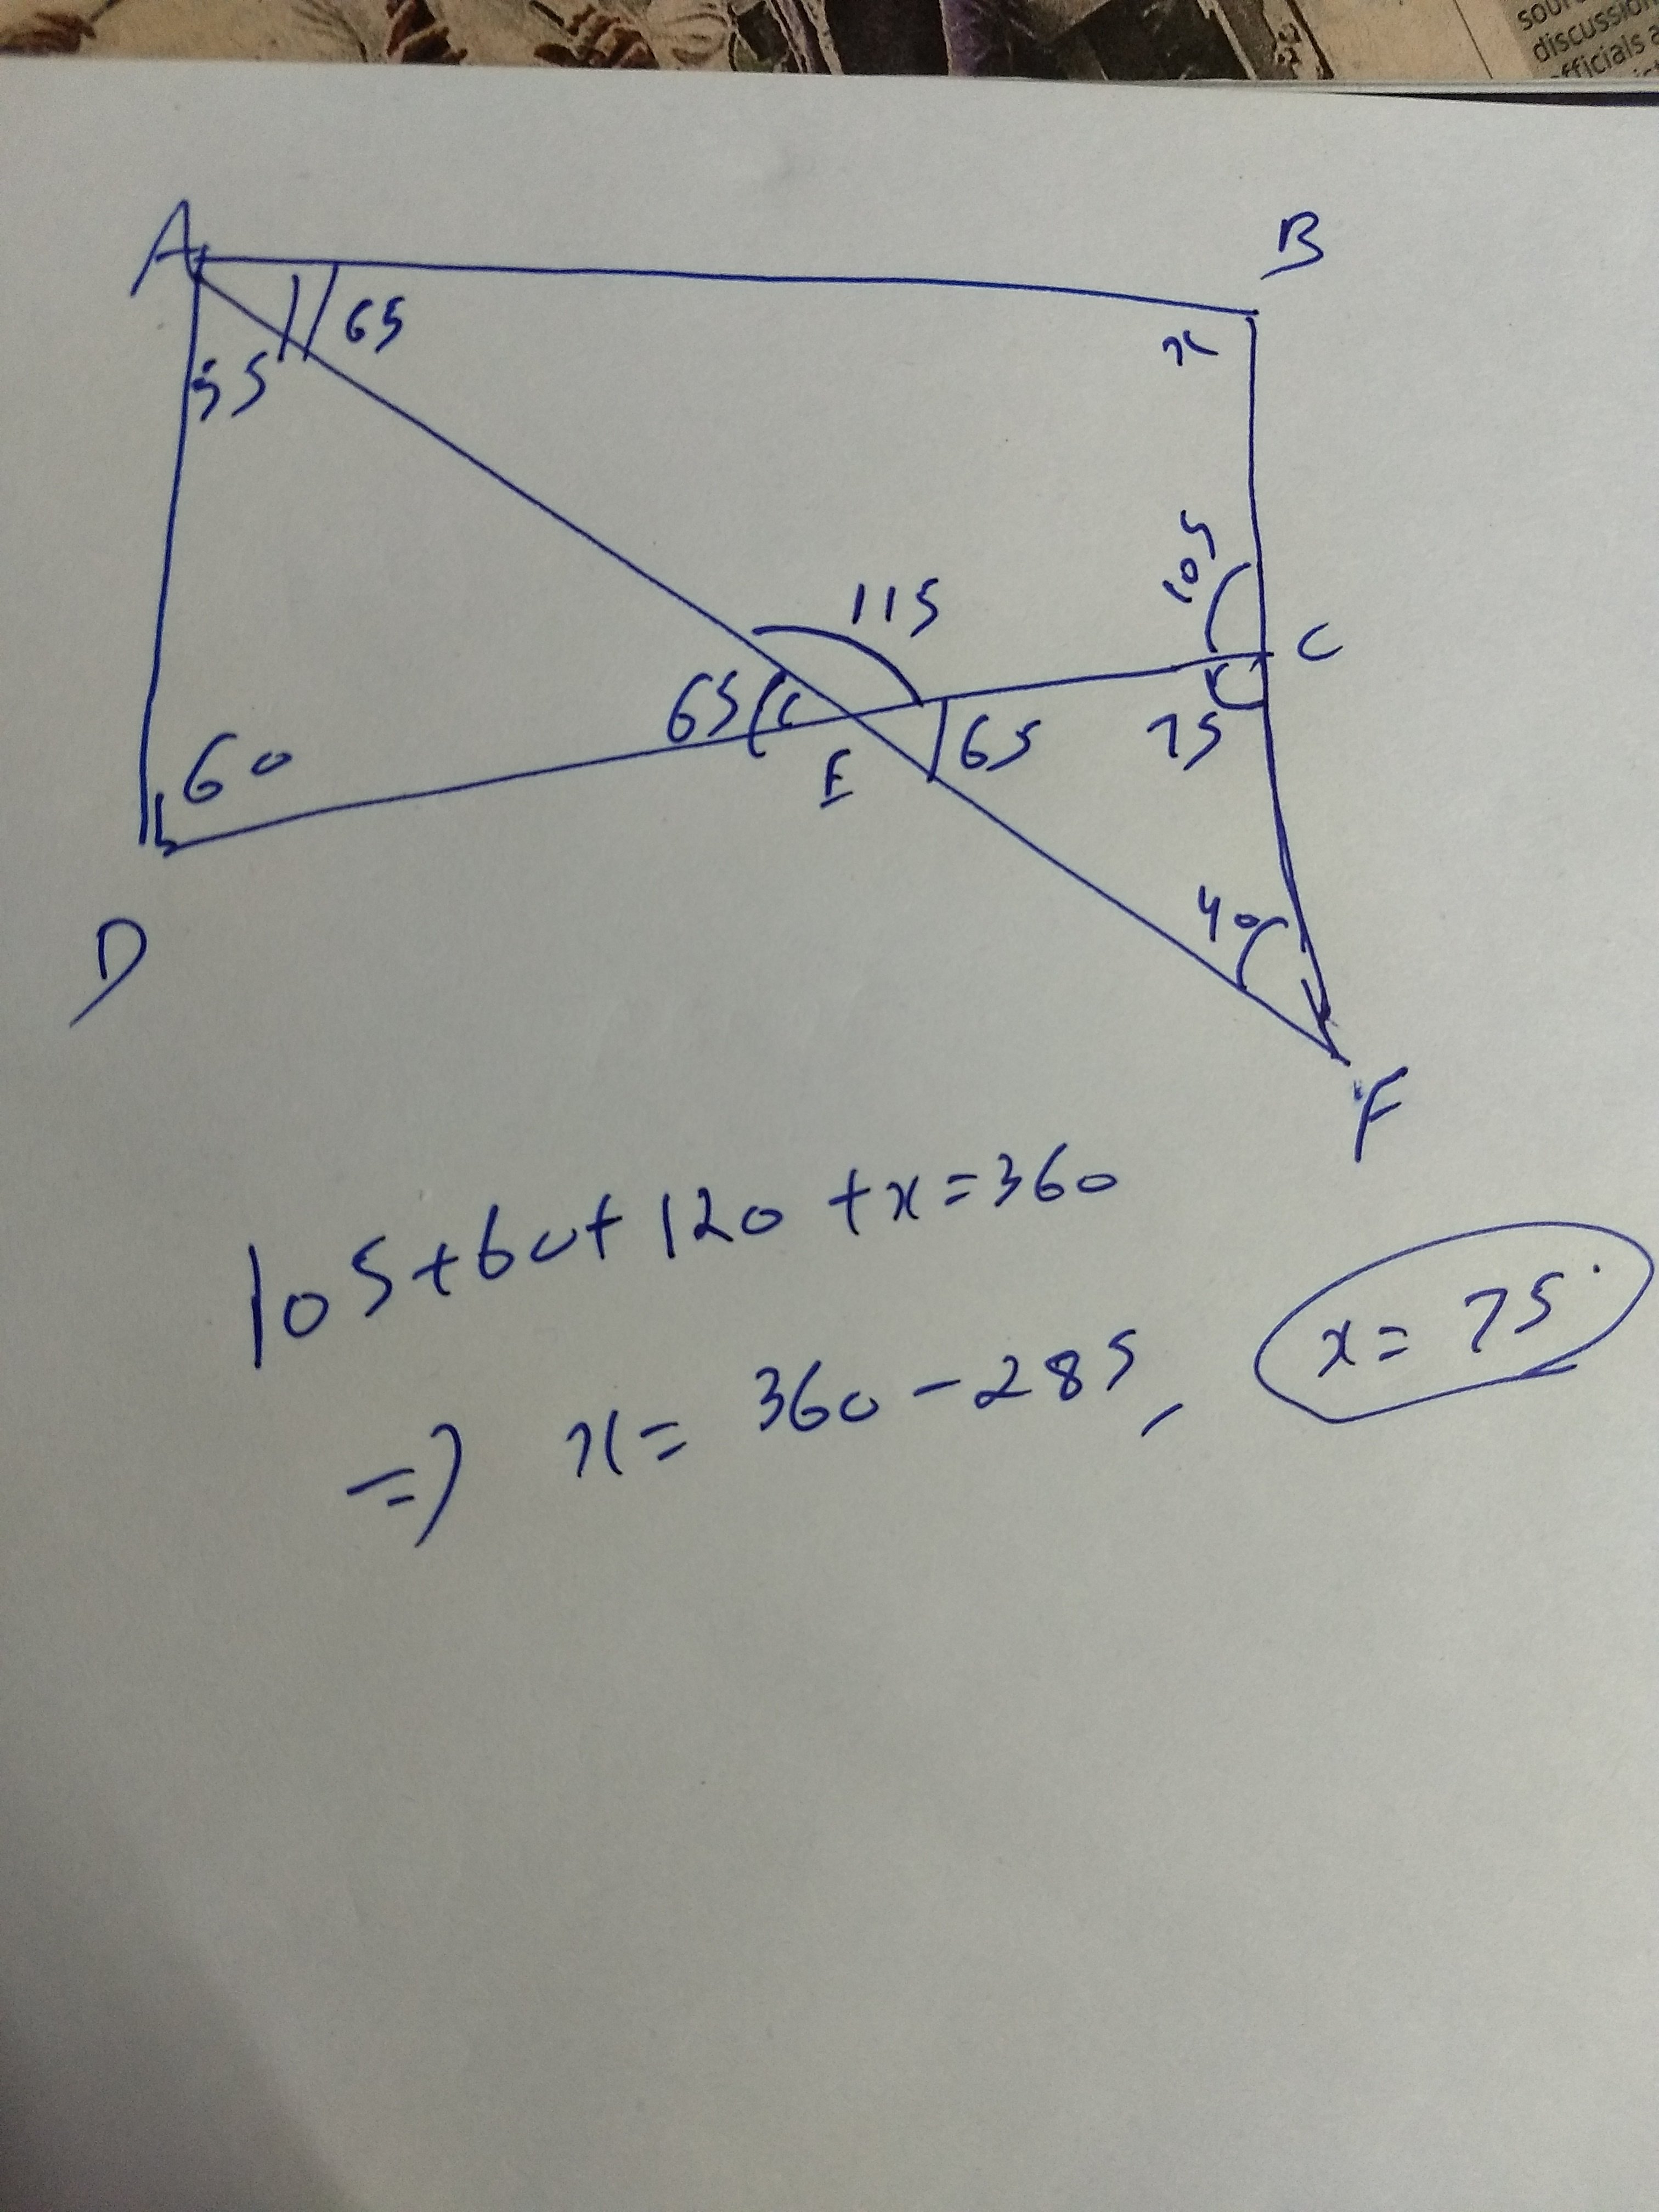 sour
discussion
officials a
A
B
65
55
x
105
115
C
65
65
75
E
60
40
D
F
105+60+120+x=360
=> x= 360-285, x= 75